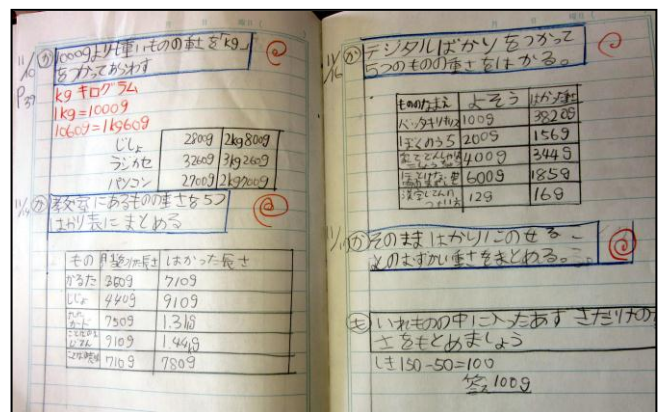 11/10 か 1000gよりも重いものの重さを「kg」
をつかってあらわす
P37
kg キログラム
1kg=1000g
1060g=1kg60g
じしょ 2800g 2kg800g
ラジカセ 3260g 3kg260g
パソコン 2700g 2kg700g
か 教室にあるものの重さを5つ
はかり表にまとめる
もの はかった長さ
かるた 360g 710g
じしょ 440g 910g
カード 750g 1.3kg
910g 1.44kg
710g 780g
11/16 か デジタルばかりをつかって
5つのものの重さをはかる。
もののなまえ よそう はかった重さ
100g 3820g
200g 156g
400g 344g
600g 185g
12g 16g
か そのままはかりにのせるこ
とのむずかい重さをまとめる。
も いれものの中に入ったあずきだけの
さをもとめましょう
しき150-50=100
答え 100g